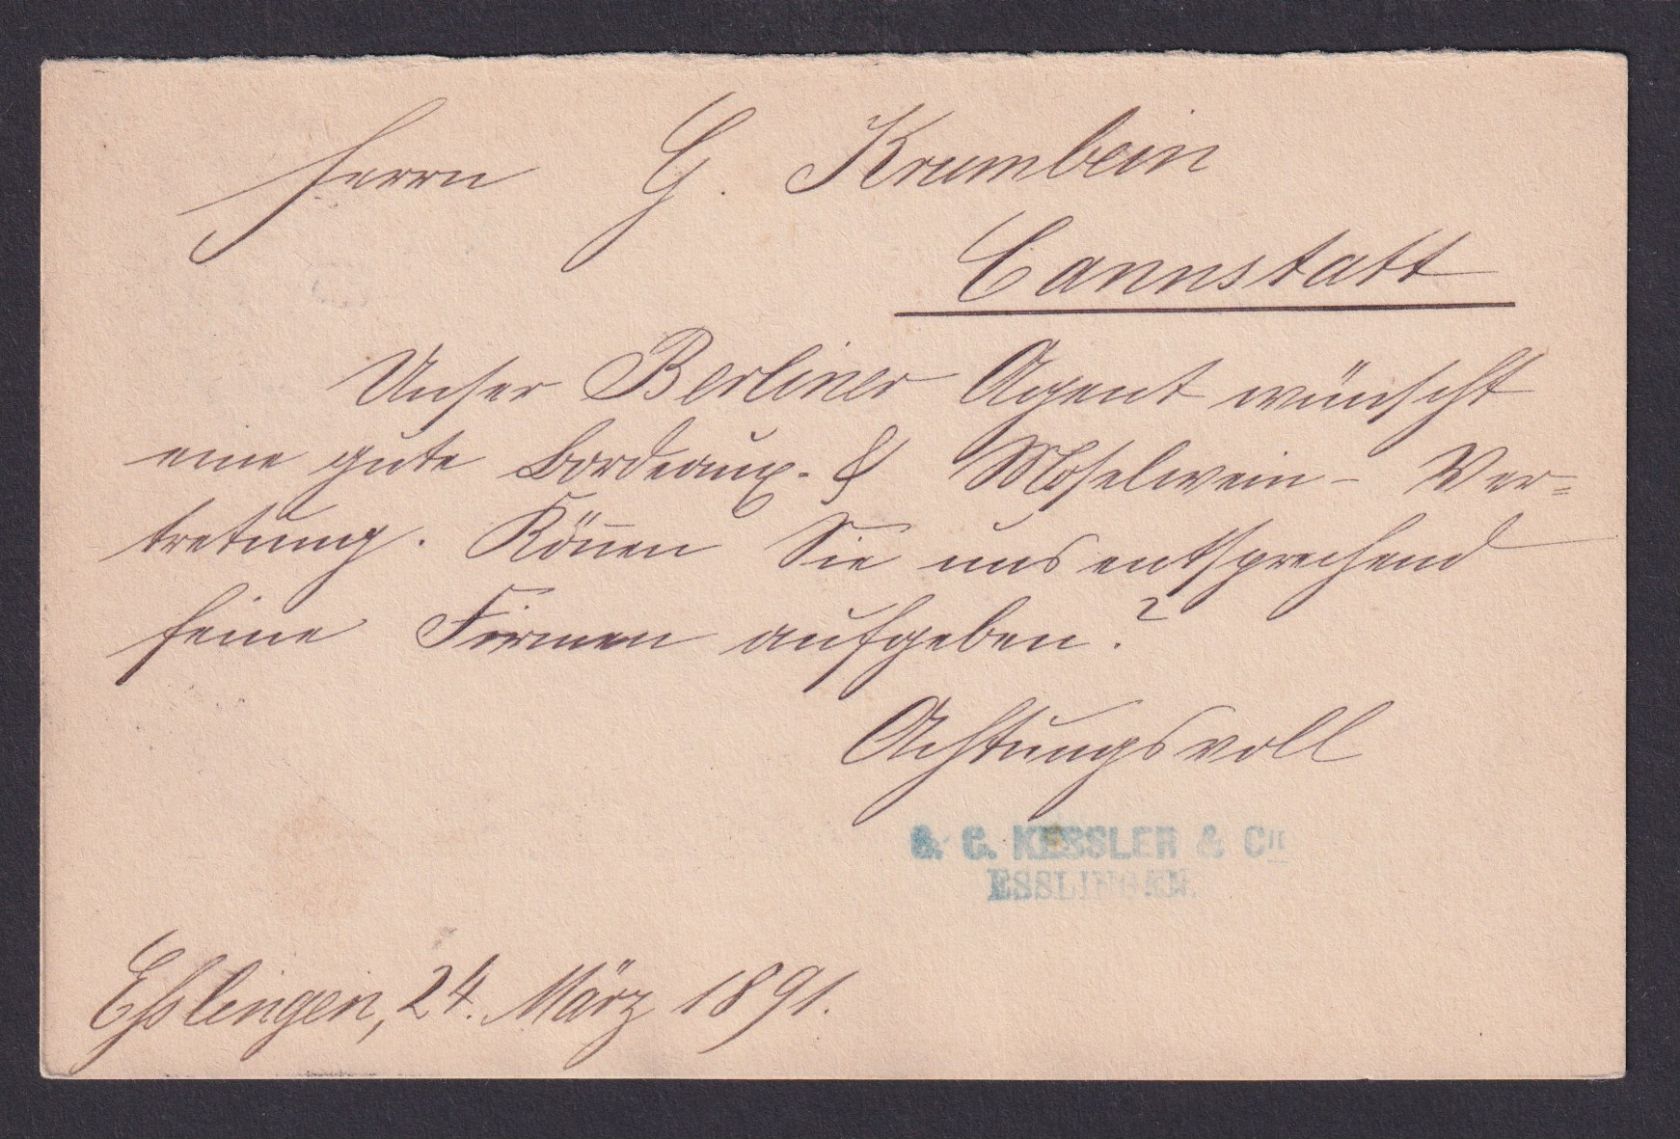 Herrn G. Krumbein
Cannstatt
Unser Berliner Agent wünscht
eine gute Bordeaux- & Moselwein- Ver=
tretung. Kön̅en Sie uns entsprechend
feine Firmen aufgeben?
Achtungsvoll
G. C. KESSLER & Cie
ESSLINGEN.
Esslingen, 24. März 1891.